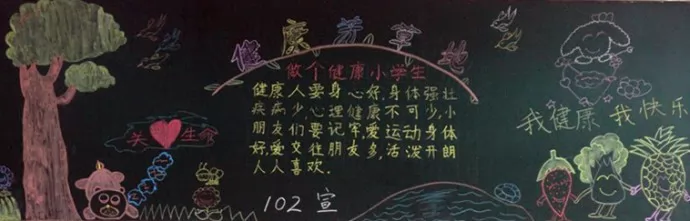 健康芳草地
做个健康小学生
健康人要身心好，身体强壮
疾病少，心理健康不可少，小
朋友们要记牢，爱运动身体
好，爱交往朋友多，活泼开朗
人人喜欢。
关❤生命
我健康 我快乐
102宣